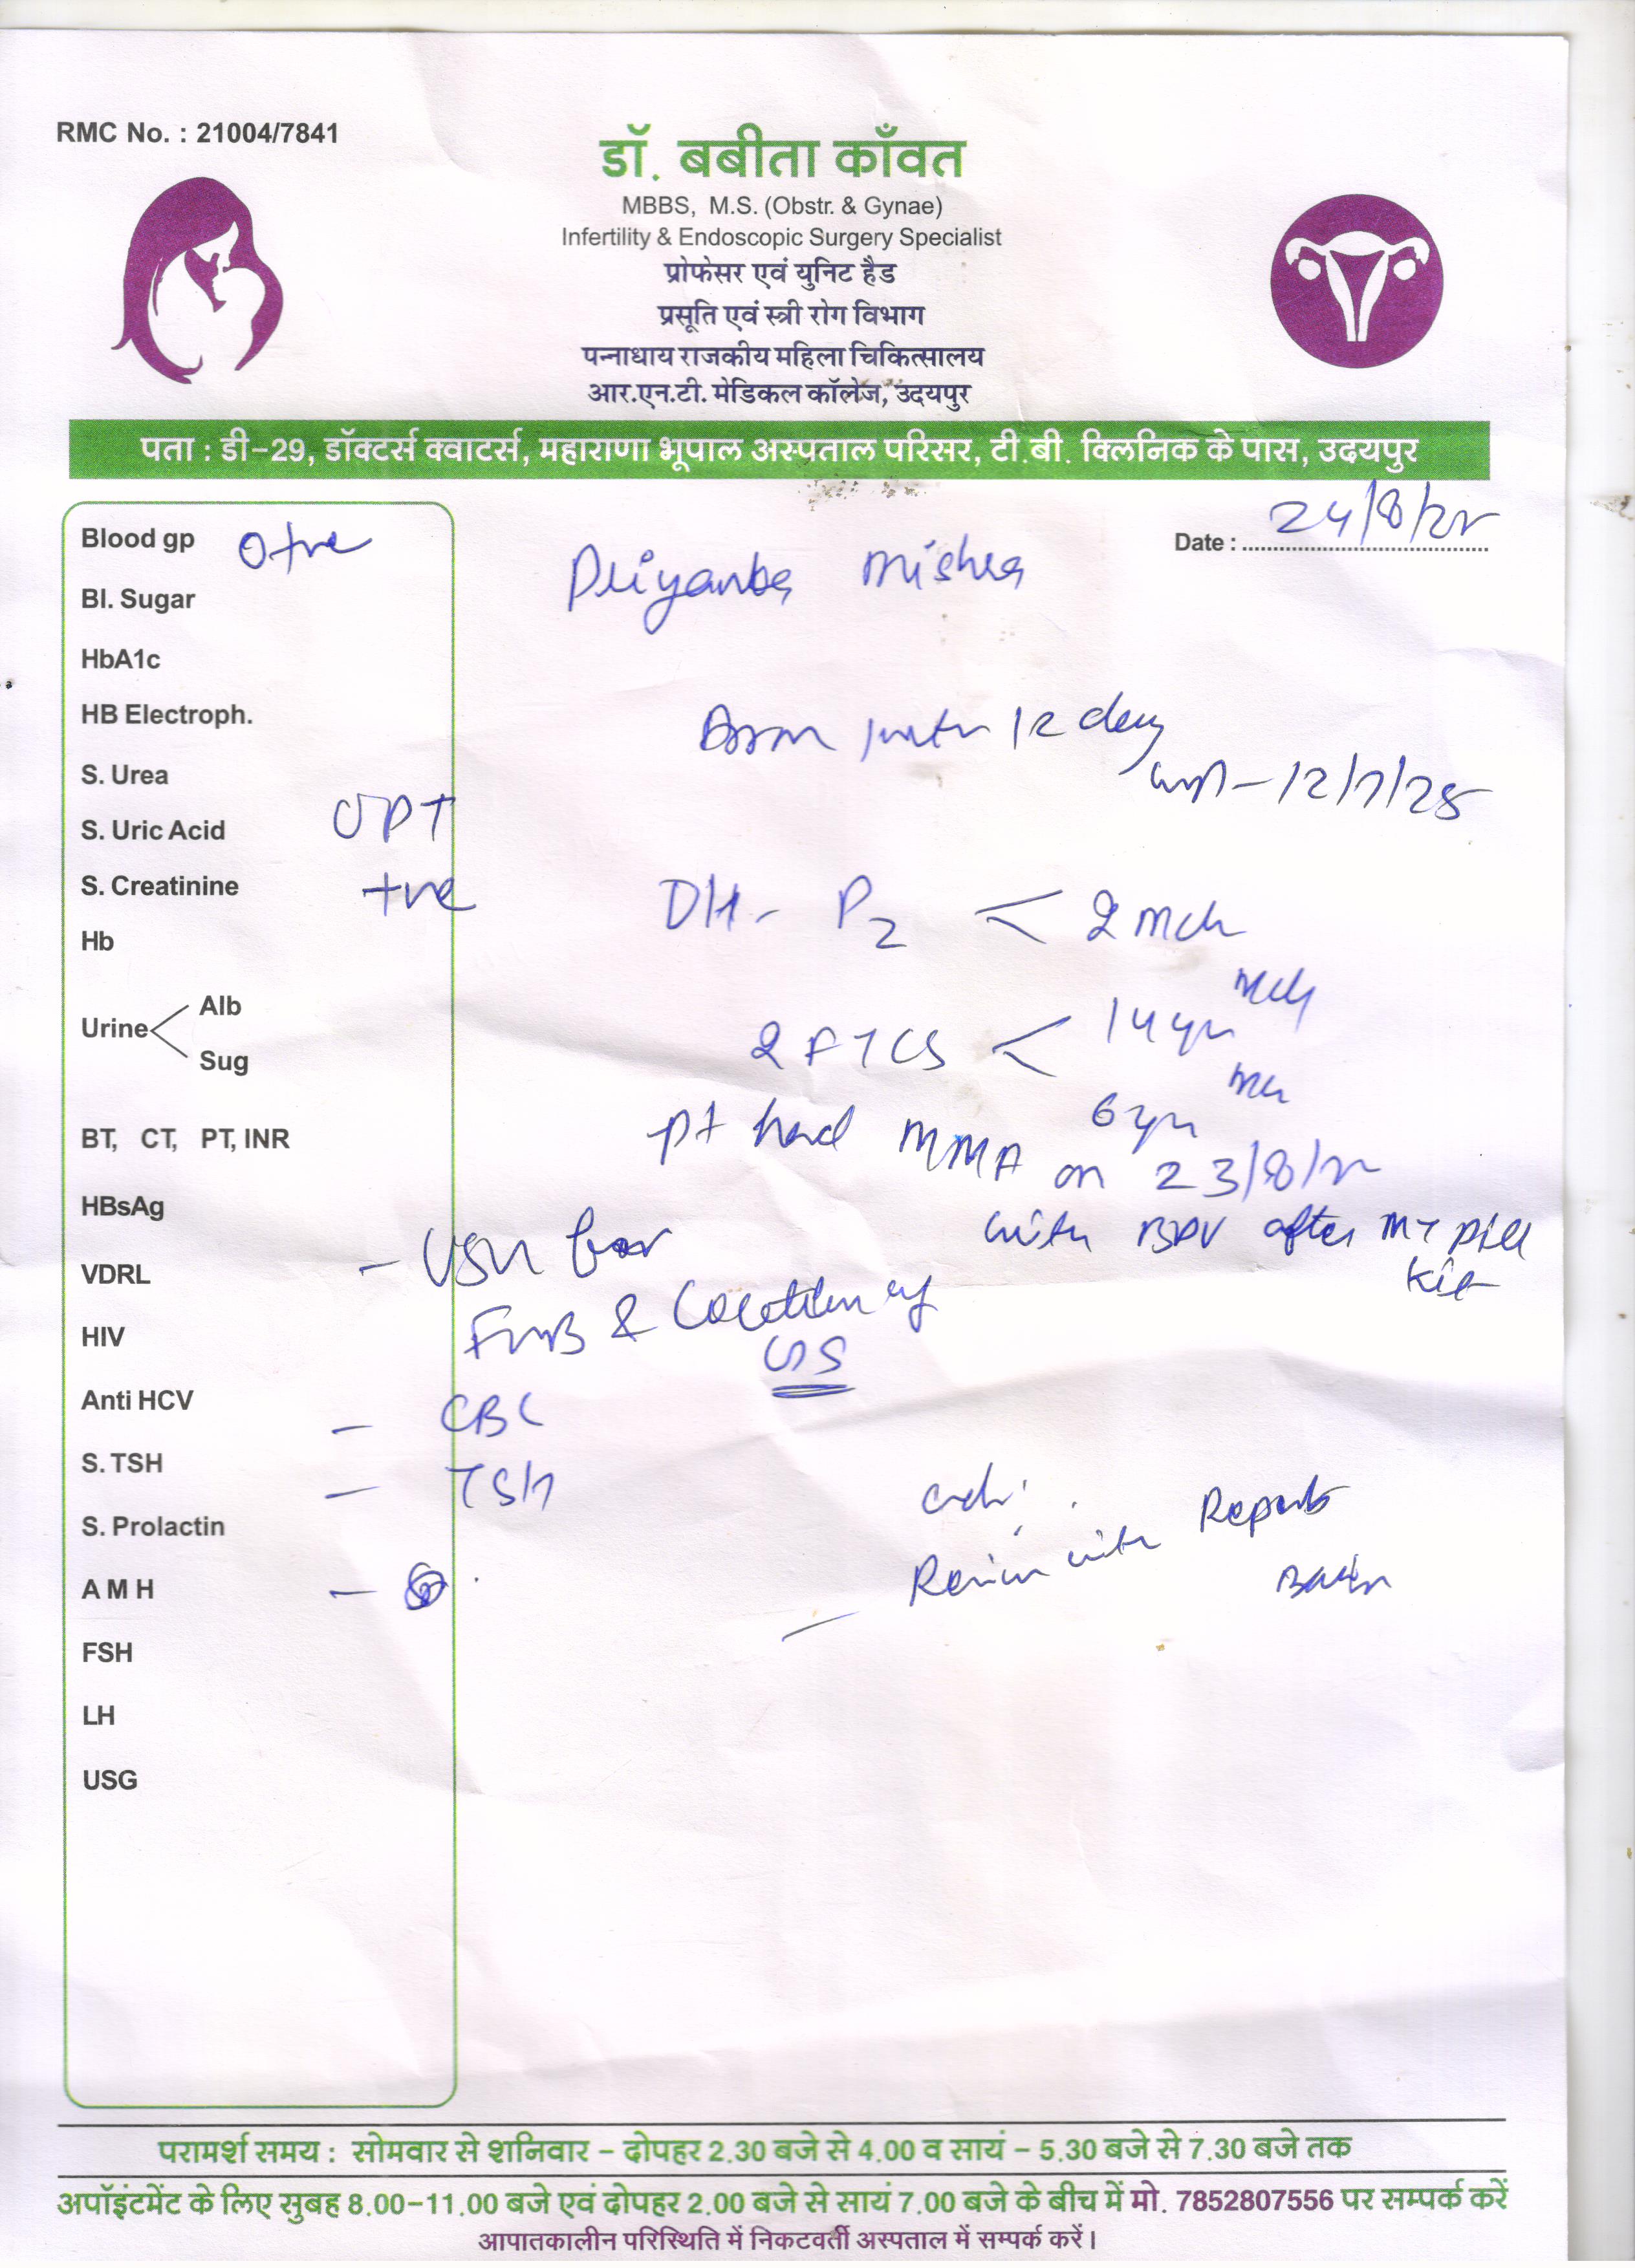 RMC No. : 21004/7841
डॉ. बबीता काँवत
MBBS, M.S. (Obstr. & Gynae)
Infertility & Endoscopic Surgery Specialist
प्रोफेसर एवं युनिट हैड
प्रसूति एवं स्त्री रोग विभाग
पन्नाधाय राजकीय महिला चिकित्सालय
आर.एन.टी. मेडिकल कॉलेज, उदयपुर
पता : डी-29, डॉक्टर्स क्वाटर्स, महाराणा भूपाल अस्पताल परिसर, टी.बी. क्लिनिक के पास, उदयपुर
Date : 24/8/
Blood gp O+ve
Priyanka Mishra
Bl. Sugar
HbA1c
HB Electroph.
12 day
S. Urea
12/7/25
S. Uric Acid
UPT
S. Creatinine
+ve
P2 < 2 mch
Hb
Urine < Alb
Sug
2 FTCS < 14 yr mch
6 yr mch
BT, CT, PT, INR
pt had MMA on 23/8/
HBsAg
with BPV after MT pill
kit
VDRL
- USG for
HIV
& Location of
GS
Anti HCV
- CBC
S. TSH
- TSH
S. Prolactin
Review with Reports
A M H
-
FSH
LH
USG
परामर्श समय : सोमवार से शनिवार - दोपहर 2.30 बजे से 4.00 व सायं - 5.30 बजे से 7.30 बजे तक
अपॉइंटमेंट के लिए सुबह 8.00-11.00 बजे एवं दोपहर 2.00 बजे से सायं 7.00 बजे के बीच में मो. 7852807556 पर सम्पर्क करें
आपातकालीन परिस्थिति में निकटवर्ती अस्पताल में सम्पर्क करें।